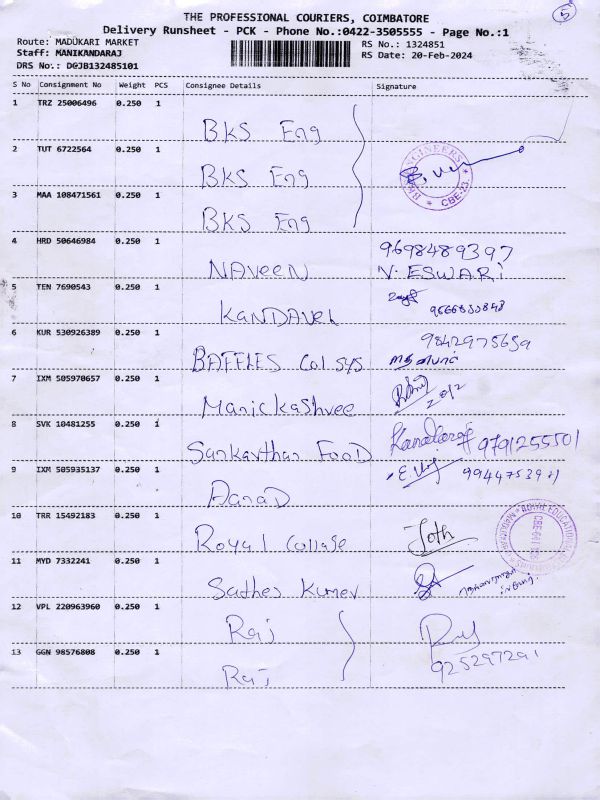 5
THE PROFESSIONAL COURIERS, COIMBATORE
Delivery Runsheet - PCK - Phone No.:0422-3505555 - Page No.:1
Route: MADUKARI MARKET
RS No.: 1324851
Staff: MANIKANDARAJ
RS Date: 20-Feb-2024
DRS No.: DGJB132485101
S No Consignment No Weight PCS Consignee Details Signature
1 TRZ 25006496 0.250 1 BKS Eng
2 TUT 6722564 0.250 1 BKS Eng
3 MAA 108471561 0.250 1 BKS Eng
CBE-23
4 HRD 50646984 0.250 1 NAVeeN 9698489397
V. ESWARi
5 TEN 7690543 0.250 1 KANDAVEL
6 KUR 530926389 0.250 1 BAFFLES Col. SYS 9842975659
7 IXM 505970657 0.250 1 Manickashree 20/2
8 SVK 10481255 1 Sankarthan FooD 9791255501
9 IXM 505935137 0.250 1
10 TRR 15492183 0.250 1 Royal College Joth
11 MYD 7332241 0.250 1 Sathes Kumer
12 VPL 220963960 0.250 1 Raj
13 GGN 98576808 0.250 1 Raj 925297291